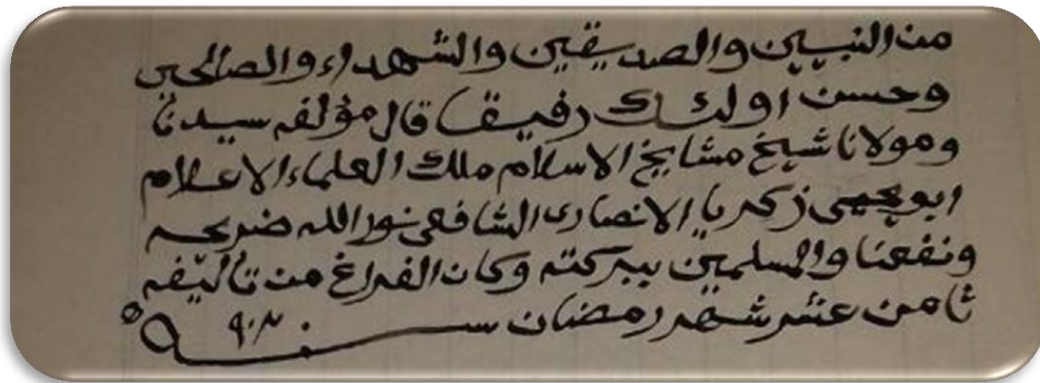 من النبيين والصديقين والشهداء والصالحين
وحسن اولئك رفيقا قال مؤلفه سيدنا
ومولانا شيخ مشايخ الاسلام ملك العلماء الاعلام
ابو يحيى زكريا الانصارى الشافعى نور الله ضريحه
ونفعنا والمسلمين ببركته وكان الفراغ من تأليفه
ثامن عشر شهر رمضان سنة